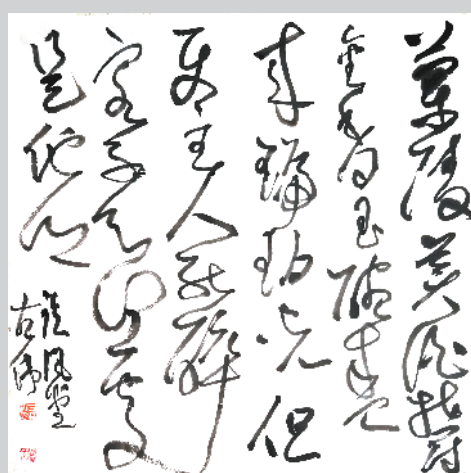 蘭陵美酒鬱
金香玉碗盛
来琥珀光但
使主人能醉
客不知何處
是他鄉